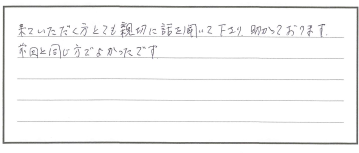 来ていただく方とても親切に話を聞いて下さり、助かっております。
前回と同じ方でよかったです。